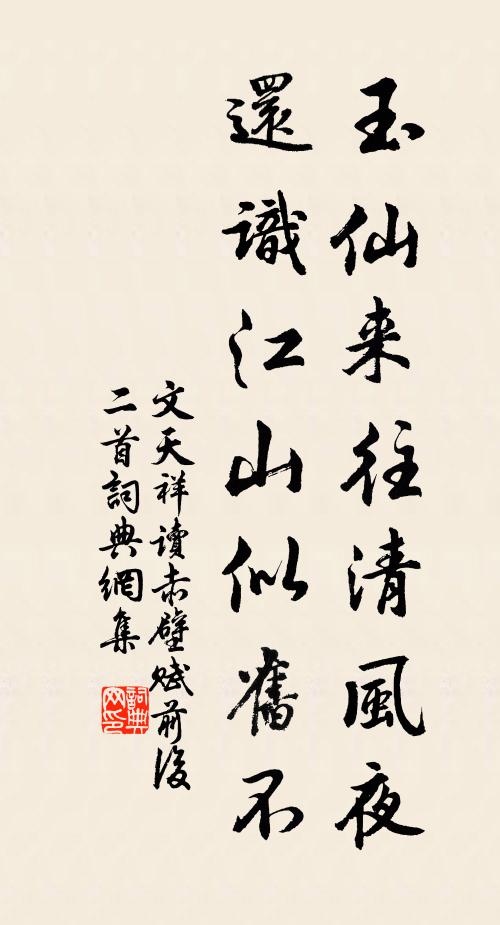 玉仙来往清風夜
還識江山似舊不
文天祥讀赤壁賦前後
二首詞典網集
詞典
网印